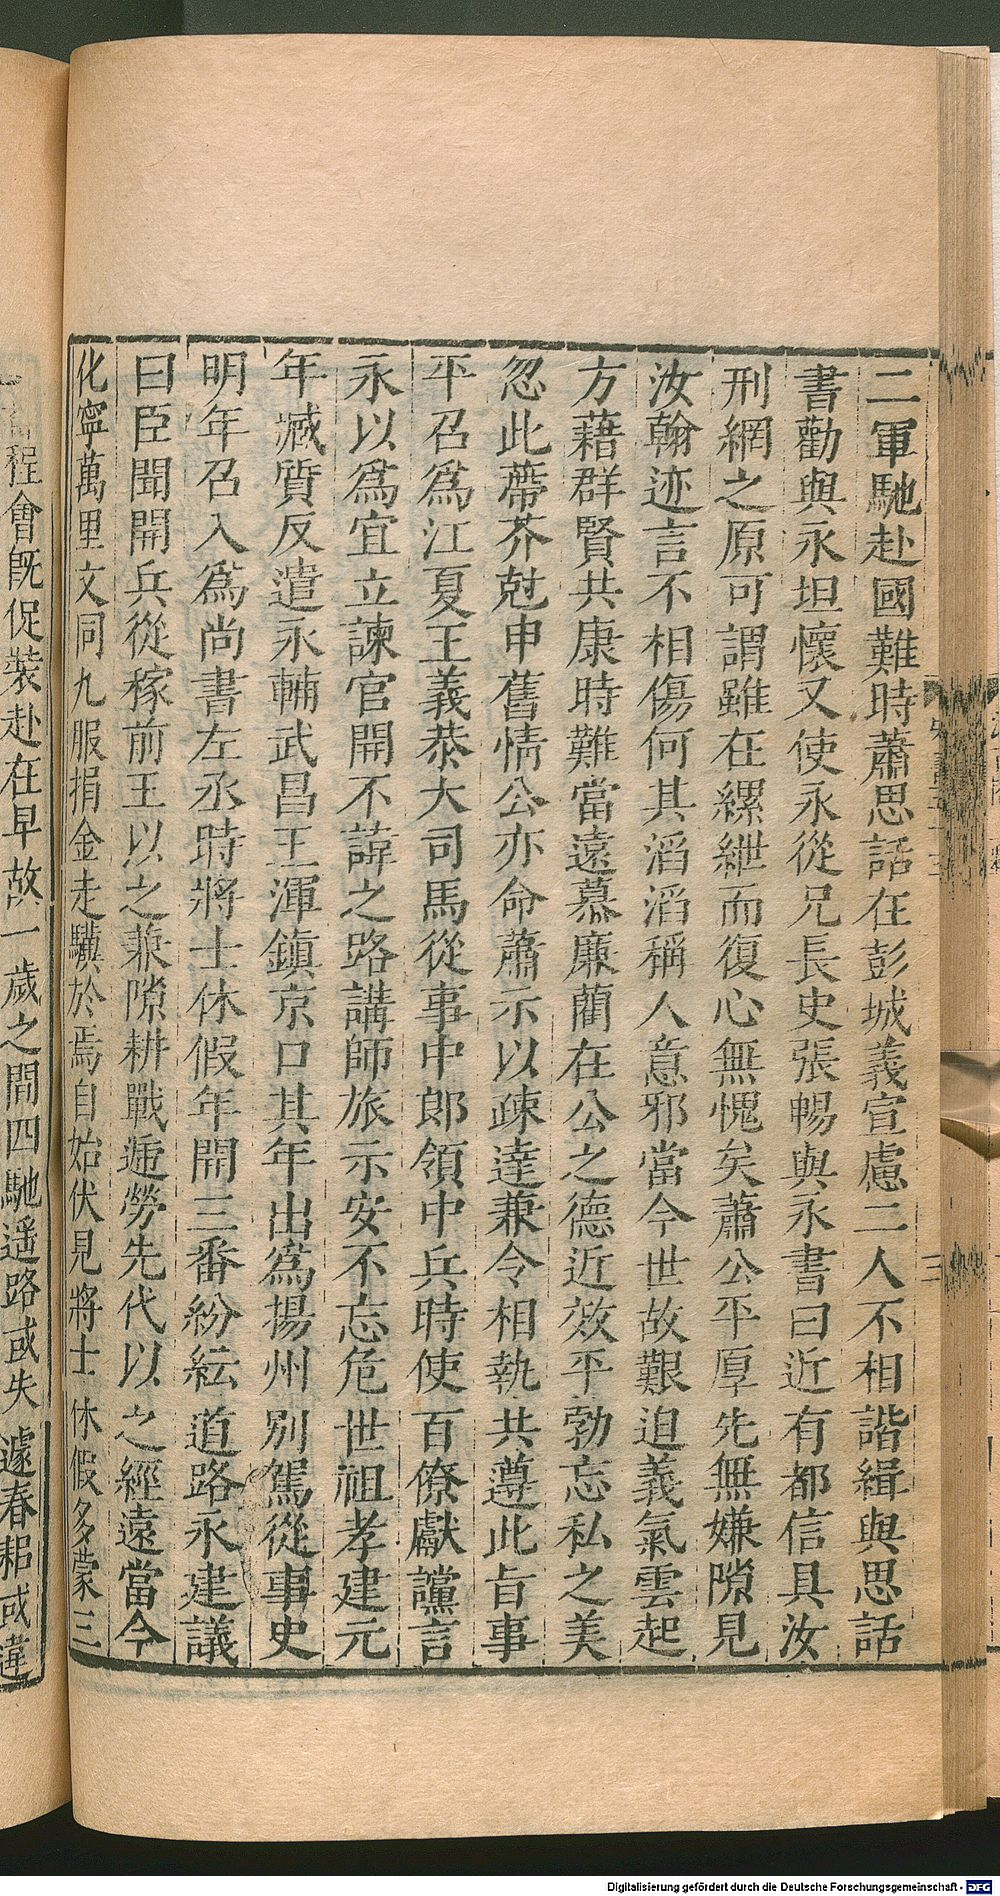 二軍馳赴國難時蕭思話在彭城義宣慮二人不相諧緝與思話
書勸與永坦懷又使永從兄長史張暢與永書曰近有都信具汝
刑網之原可謂雖在縲紲而復心無愧矣蕭公平厚先無嫌隙見
汝翰迹言不相傷何其滔滔稱人意邪當今世故艱迫義氣雲起
方藉群賢共康時難當遠慕廉藺在公之德近效平勃忘私之美
忽此蔕芥尅申舊情公亦命蕭示以疎達兼令相執共遵此旨事
平召爲江夏王義恭大司馬從事中郎領中兵時使百僚獻讜言
永以爲宜立諫官開不諱之路講師旅示安不忘危世祖孝建元
年臧質反遣永輔武昌王渾鎮京口其年出爲揚州別駕從事史
明年召入爲尚書左丞時將士休假年開三番紛紜道路永建議
曰臣聞開兵從稼前王以之兼隙耕戰遞勞先代以之經遠當今
化寧萬里文同九服捐金走驥於焉自始伏見將士休假多蒙三
程會旣促裝赴在早故一歲之間四馳遥路或失遽春耜或違
Digitalisierung gefördert durch die Deutsche Forschungsgemeinschaft - DFG